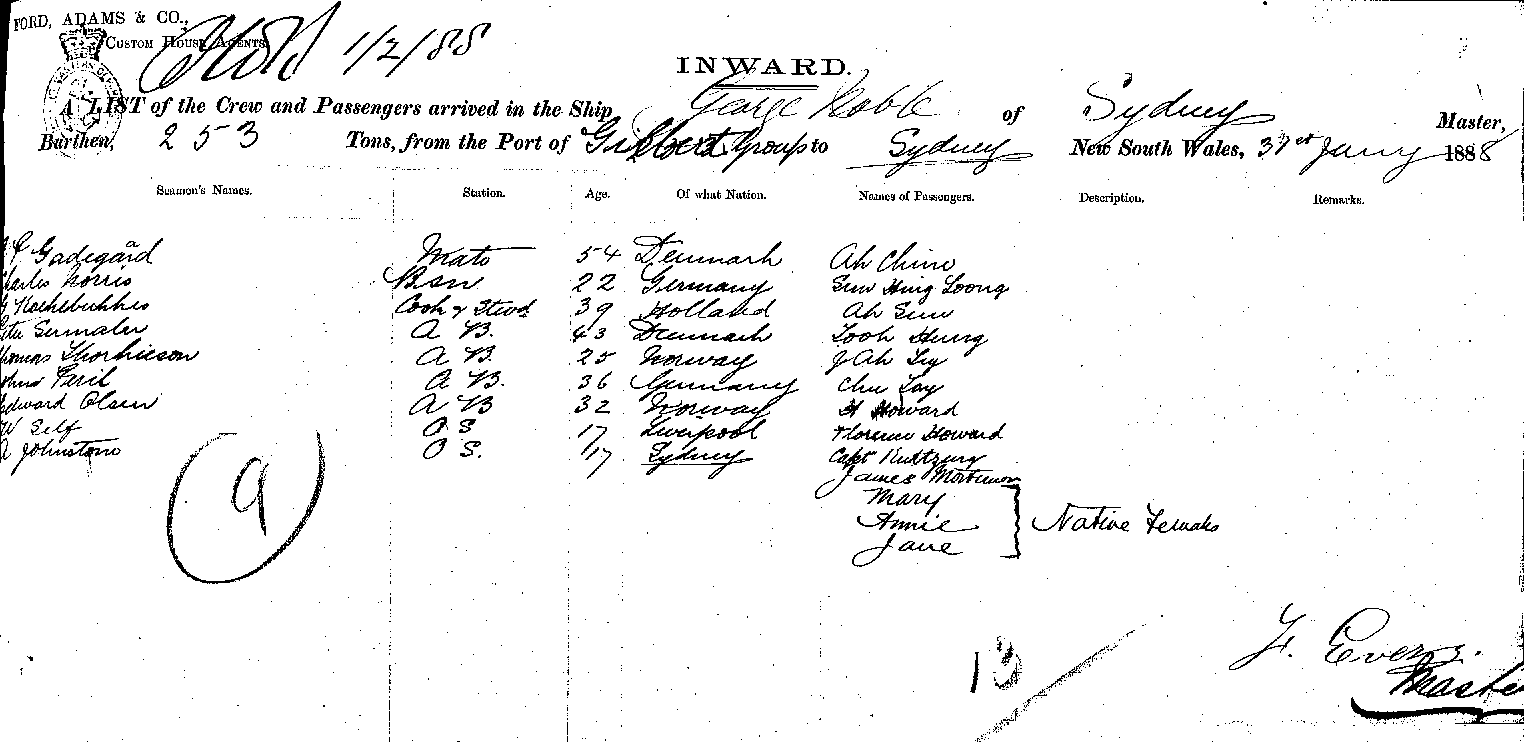 FORD, ADAMS & CO.,
CUSTOM HOUSE AGENTS
1/2/88
INWARD.
A LIST of the Crew and Passengers arrived in the Ship George Noble of Sydney Master,
Burthen, 253 Tons, from the Port of Gilbert Group to Sydney New South Wales, 31st Jany 1888
Seamen's Names. Station. Age. Of what Nation. Names of Passengers. Description. Remarks.
Gadegård Mate 54 Denmark Ah Chine
harles Norris Bsn 22 Germany Sun Hing Loong
Cook & Stewd 39 Holland Ah Sun
A B. 43 Denmark Hung
homas A B. 25 Norway Ah
A B. 36 Germany Chu Lay
dward Olsen A B 32 Norway H Howard
W Self O S 17 Liverpool Florence Howard
A Johnstone O S. 17 Sydney Capt
James
Mary
Annie Native Females
Jane
9
13
F. Evens.
Maste